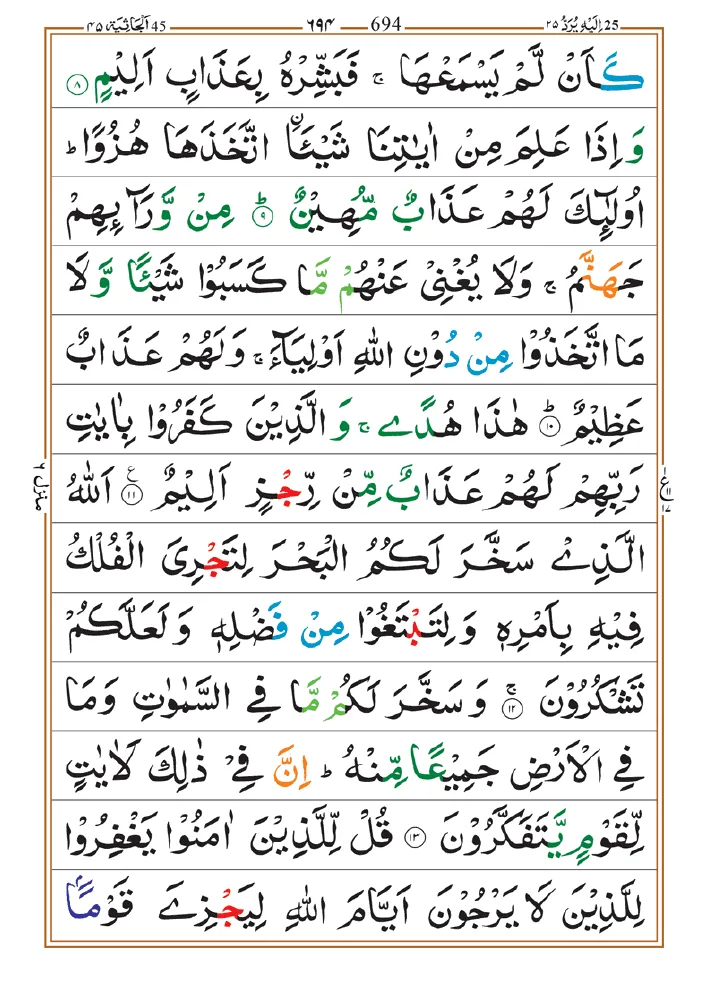 25 اِلَيْهِ يُرَدُّ ٢٥ 694 ٦٩٤ 45 اَلْجَاثِيَة ٤٥
كَاَنْ لَّمْ يَسْمَعْهَا ۚ فَبَشِّرْهُ بِعَذَابٍ اَلِيْمٍ ۝٨
وَ اِذَا عَلِمَ مِنْ اٰيٰتِنَا شَيْـَٔاۨ اتَّخَذَهَا هُزُوًا ؕ
اُولٰٓئِكَ لَهُمْ عَذَابٌ مُّهِيْنٌ ۝٩ؕ مِنْ وَّرَآئِهِمْ
جَهَنَّمُ ۚ وَلَا يُغْنِيْ عَنْهُمْ مَّا كَسَبُوْا شَيْـًٔا وَّلَا
مَا اتَّخَذُوْا مِنْ دُوْنِ اللّٰهِ اَوْلِيَآءَ ۚ وَلَهُمْ عَذَابٌ
عَظِيْمٌ ۝١٠ؕ هٰذَا هُدًى ۚ وَ الَّذِيْنَ كَفَرُوْا بِاٰيٰتِ
رَبِّهِمْ لَهُمْ عَذَابٌ مِّنْ رِّجْزٍ اَلِيْمٌ ۝١١ۧ اَللّٰهُ
الَّذِيْ سَخَّرَ لَكُمُ الْبَحْرَ لِتَجْرِيَ الْفُلْكُ
فِيْهِ بِاَمْرِهٖ وَ لِتَبْتَغُوْا مِنْ فَضْلِهٖ وَ لَعَلَّكُمْ
تَشْكُرُوْنَ ۝١٢ۚ وَ سَخَّرَ لَكُمْ مَّا فِي السَّمٰوٰتِ وَمَا
فِي الْاَرْضِ جَمِيْعًا مِّنْهُ ؕ اِنَّ فِيْ ذٰلِكَ لَاٰيٰتٍ
لِّقَوْمٍ يَّتَفَكَّرُوْنَ ۝١٣ قُلْ لِّلَّذِيْنَ اٰمَنُوْا يَغْفِرُوْا
لِلَّذِيْنَ لَا يَرْجُوْنَ اَيَّامَ اللّٰهِ لِيَجْزِيَ قَوْمًاۢ
منزل ٦
ع ١١ ١٧